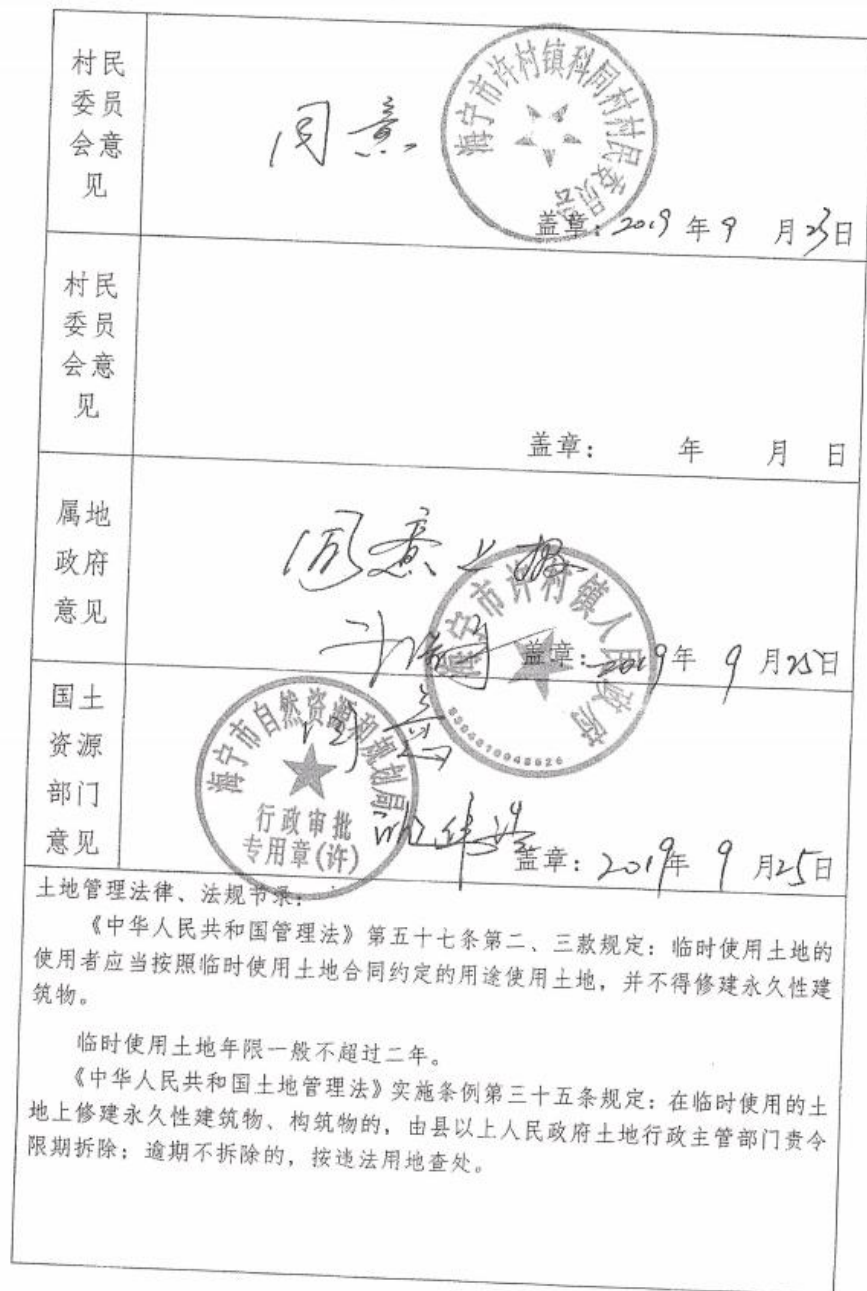 村民
委员
会意
见
同意
海宁市许村镇科同村村民委员会
盖章：2019年9月23日
村民
委员
会意
见
盖章： 年 月 日
属地
政府
意见
同意上报
海宁市许村镇人民政府
盖章：2019年9月25日
国土
资源
部门
意见
同意
海宁市自然资源和规划局
行政审批
专用章(许)
盖章：2019年9月25日
土地管理法律、法规节录：
《中华人民共和国管理法》第五十七条第二、三款规定：临时使用土地的
使用者应当按照临时使用土地合同约定的用途使用土地，并不得修建永久性建
筑物。
临时使用土地年限一般不超过二年。
《中华人民共和国土地管理法》实施条例第三十五条规定：在临时使用的土
地上修建永久性建筑物、构筑物的，由县以上人民政府土地行政主管部门责令
限期拆除；逾期不拆除的，按违法用地查处。